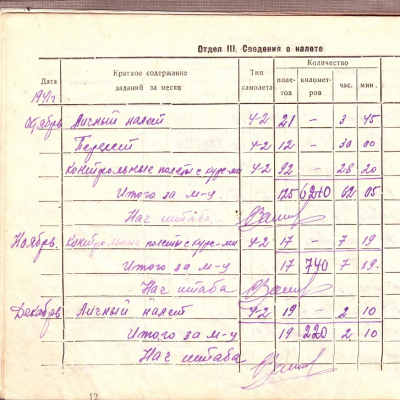 Отдел III. Сведения о налете
Дата
Краткое содержание заданий за месяц
Тип самолета
Количество
полетов
километров
час.
мин.
1941г
Октябрь Личный налет У-2 21 — 3 45
Перелет У-2 12 — 30 00
Контрольные полеты с кур-ми У-2 92 — 28 20
Итого за м-ц 125 6210 62 05
Нач штаба
Ноябрь. Контрольные полеты с кур-ми У-2 17 — 7 19
Итого за м-ц 17 740 7 19.
Нач штаба
Декабрь Личный налет У-2 19 — 2 10
Итого за м-ц 19 220 2 10
Нач штаба
12